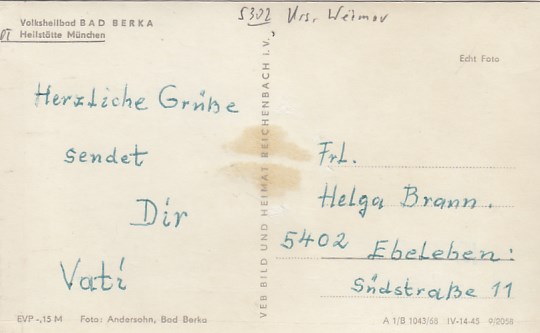 5302 Krs. Weimar
Volksheilbad BAD BERKA
VI Heilstätte München
Echt Foto
Herzliche Grüße
sendet
Dir
Vati
VEB BILD UND HEIMAT REICHENBACH I.V.
Frl.
Helga Brann.
5402 Ebeleben:
Südstraße 11
EVP -,15 M Foto: Andersohn, Bad Berka
A 1/B 1043/68 IV-14-45 9/2056